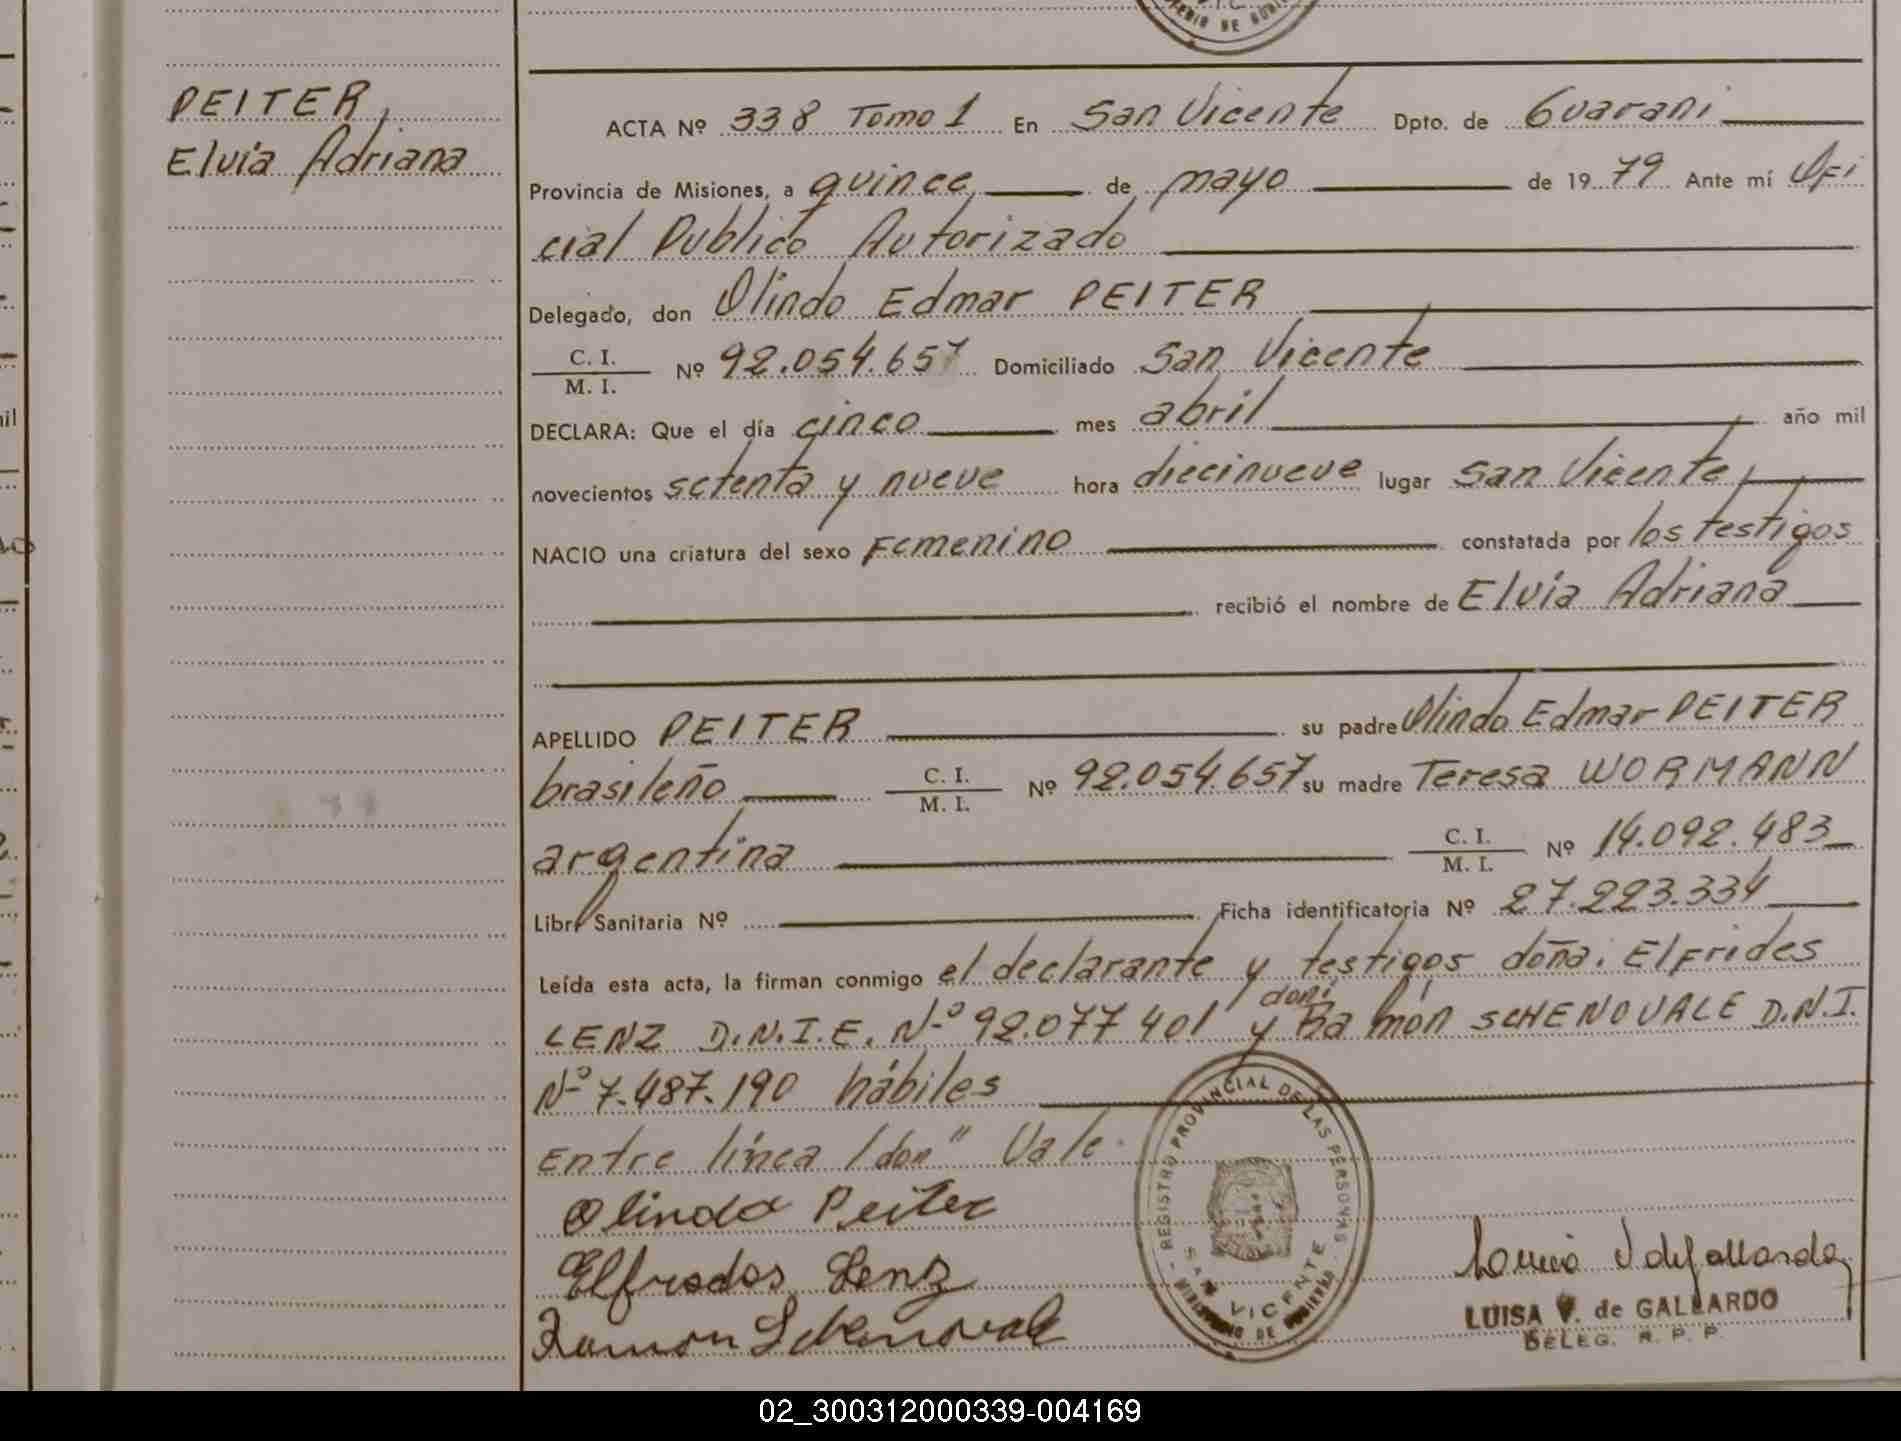 PEITER,
Elvia Adriana
ACTA Nº 338 Tomo 1 En San Vicente Dpto. de Guarani
Provincia de Misiones, a quince de mayo de 1979 Ante mí Ofi
cial Publico Autorizado
Delegado, don Olindo Edmar PEITER
C. I.
M. I. Nº 92.054.657 Domiciliado San Vicente
DECLARA: Que el día cinco mes abril año mil
novecientos setenta y nueve hora diecinueve lugar San Vicente,
NACIO una criatura del sexo Femenino constatada por los testigos
recibió el nombre de Elvia Adriana
APELLIDO PEITER su padre Olindo Edmar PEITER
brasileño C. I. M. I. Nº 92.054.657 su madre Teresa WORMANN
argentina C. I. M. I. Nº 14.092.483
Libr. Sanitaria Nº Ficha identificatoria Nº 27.223.334
Leída esta acta, la firman conmigo el declarante y testigos doña: Elfrides
LENZ D.N.I.E. Nº 92.077.401 y don: Ramón SCHENOVALE D.N.I.
Nº 7.487.190 hábiles
Entre línea "don" Vale.
Olindo Peiter
Elfrodos Lenz
Ramon Schenovale
REGISTRO PROVINCIAL DE LAS PERSONAS
SAN VICENTE
MINISTERIO DE GOBIERNO
LUISA V. de GALLARDO
DELEG. R. P. P.
02_300312000339-004169